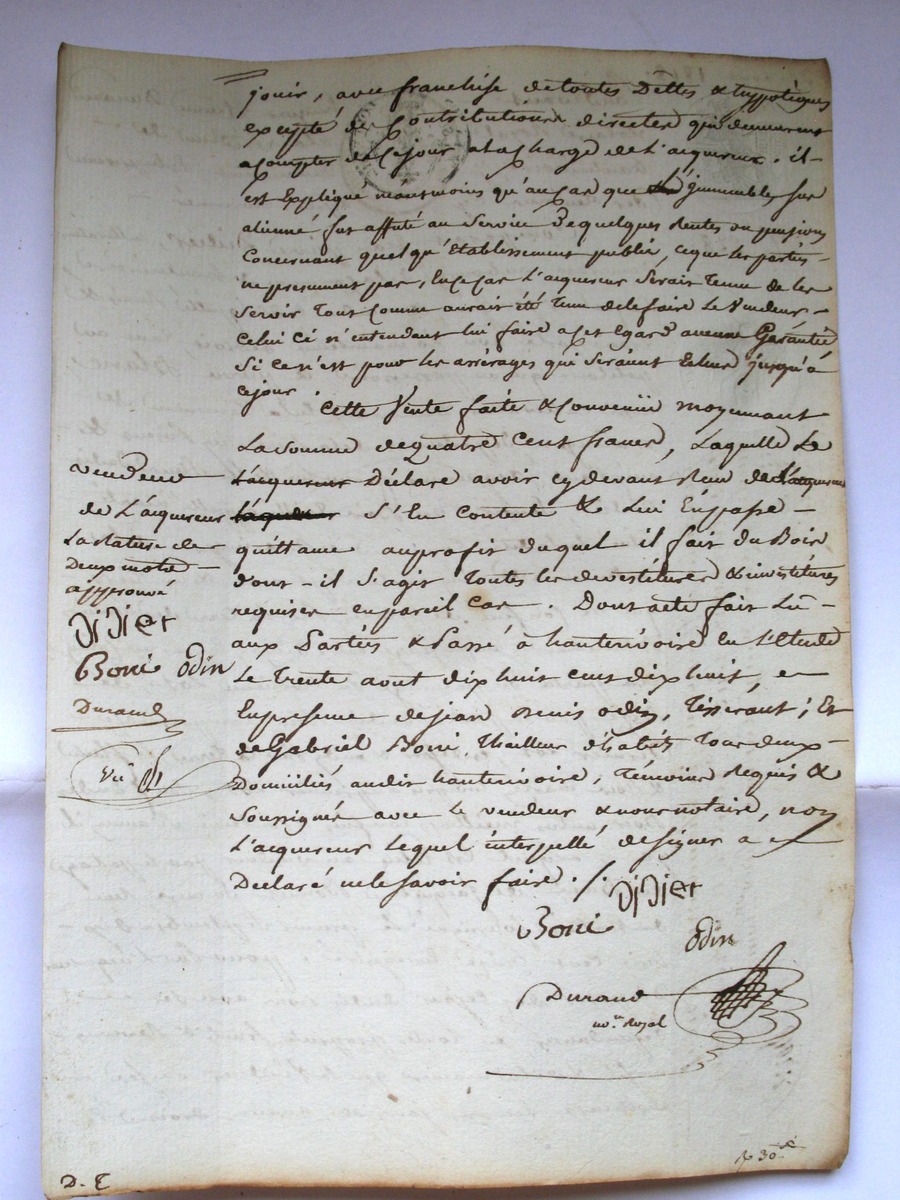 jouir, avec franchise de toutes Dettes & hyppotèques
excepté des Contributions directes qui demeurent
a compter de Ce jour a la Charge de l'acquereur. il
est Expliqué néantmoins qu'au Cas que l'immeuble sus
aliené fut affecté au Service De quelques Rentes ou pensions
Concernant quelqu'Etablissement public, ce que les parties
ne presument pas, En ce Cas L'acquereur Serait Tenu de les
Servir Tout Comme aurait été Tenu de le faire Le Vendeur
Celui Ci n'entendant lui faire a cet Egard aucune Garantie
Si ce n'est pour les arrérages qui Seraient Echus jusqu'à
ce jour
Cette Vente faite & Convenüe moyennant
La Somme de quatre Cent francs, Laquelle Le
L'acquereur Déclare avoir cy devant Reçu de L'acquereur
S'En Contente & Lui En passe
quittance au profit duquel il fait du Bois
dont il S'agit Toutes les devestitures & investitures
requises en pareil Cas. Dont acte fait Lu
aux Parties & Passé à hauterivoire En L'Etude
Le Trente aout dix huit cent dix huit, en
En présence de jean Denis odin, Tisserant; Et
de Gabriel Boni, Thailleur d'habits Tous deux
Domiciliés audit hauterivoire, Témoins Requis &
Soussignés avec Le vendeur & nous notaire, non
L'acquereur Lequel interpellé de Signer a
Déclaré ne le Savoir faire ./.
vendeur
de L'acquereur
La Rature de
Deux mots
approuvé
Didier
Boni odin
Durand
Didier
Boni
odin
Durand
no.re Royal
D. E